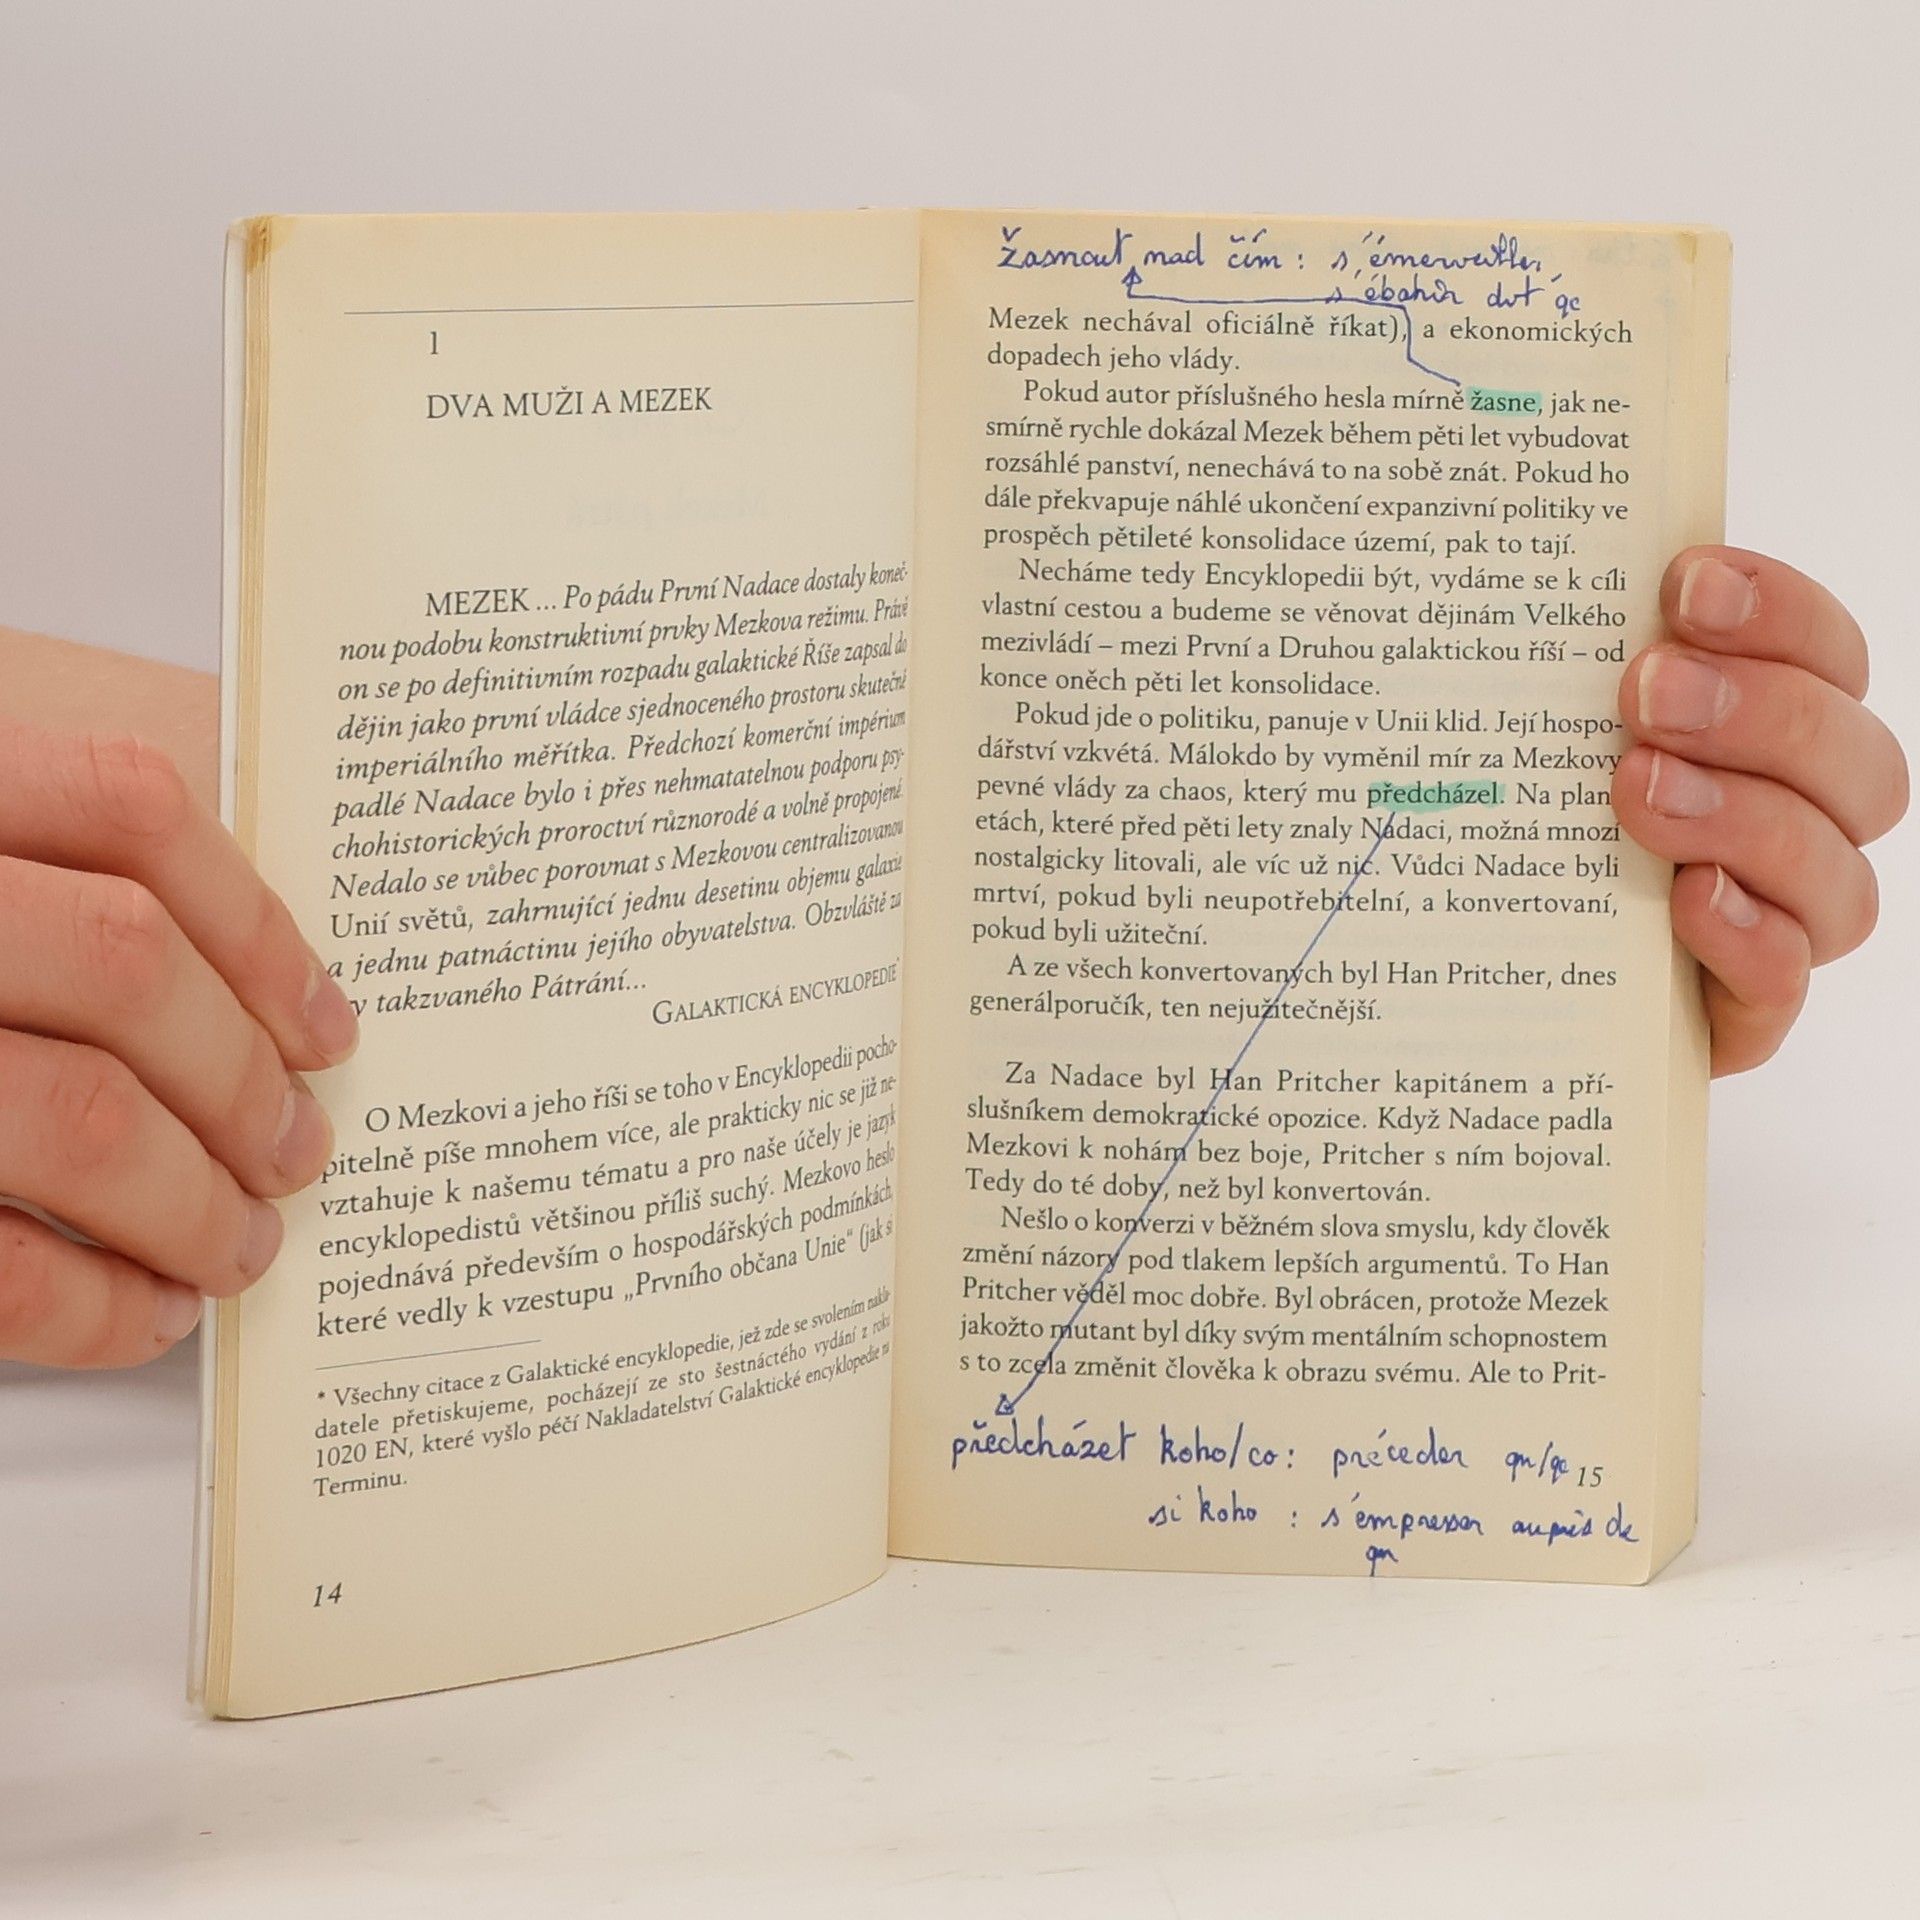 1
DVA MUŽI A MEZEK
MEZEK ... Po pádu První Nadace dostaly koneč-
nou podobu konstruktivní prvky Mezkova režimu. Právě
on se po definitivním rozpadu galaktické Říše zapsal do
dějin jako první vládce sjednoceného prostoru skutečně
imperiálního měřítka. Předchozí komerční impérium
padlé Nadace bylo i přes nehmatatelnou podporu psy-
chohistorických proroctví různorodé a volně propojené.
Nedalo se vůbec porovnat s Mezkovou centralizovanou
Unií světů, zahrnující jednu desetinu objemu galaxie
a jednu patnáctinu jejího obyvatelstva. Obzvláště za
ry takzvaného Pátrání...
GALAKTICKÁ ENCYKLOPEDIE*
O Mezkovi a jeho říši se toho v Encyklopedii pocho-
pitelně píše mnohem více, ale prakticky nic se již ne-
vztahuje k našemu tématu a pro naše účely je jazyk
encyklopedistů většinou příliš suchý. Mezkovo heslo
pojednává především o hospodářských podmínkách,
které vedly k vzestupu „Prvního občana Unie“ (jak si
* Všechny citace z Galaktické encyklopedie, jež zde se svolením nakla-
datele přetiskujeme, pocházejí ze sto šestnáctého vydání z roku
1020 EN, které vyšlo péčí Nakladatelství Galaktické encyklopedie na
Terminu.
14
žasnout nad čím : s'émerveiller,
s'ébahir dvt qc
Mezek nechával oficiálně říkat), a ekonomických
dopadech jeho vlády.
Pokud autor příslušného hesla mírně žasne, jak ne-
smírně rychle dokázal Mezek během pěti let vybudovat
rozsáhlé panství, nenechává to na sobě znát. Pokud ho
dále překvapuje náhlé ukončení expanzivní politiky ve
prospěch pětileté konsolidace území, pak to tají.
Necháme tedy Encyklopedii být, vydáme se k cíli
vlastní cestou a budeme se věnovat dějinám Velkého
mezivládí – mezi První a Druhou galaktickou říší – od
konce oněch pěti let konsolidace.
Pokud jde o politiku, panuje v Unii klid. Její hospo-
dářství vzkvétá. Málokdo by vyměnil mír za Mezkovy
pevné vlády za chaos, který mu předcházel. Na plan
etách, které před pěti lety znaly Nadaci, možná mnozí
nostalgicky litovali, ale víc už nic. Vůdci Nadace byli
mrtví, pokud byli neupotřebitelní, a konvertovaní,
pokud byli užiteční.
A ze všech konvertovaných byl Han Pritcher, dnes
generálporučík, ten nejužitečnější.
Za Nadace byl Han Pritcher kapitánem a pří-
slušníkem demokratické opozice. Když Nadace padla
Mezkovi k nohám bez boje, Pritcher s ním bojoval.
Tedy do té doby, než byl konvertován.
Nešlo o konverzi v běžném slova smyslu, kdy člověk
změní názory pod tlakem lepších argumentů. To Han
Pritcher věděl moc dobře. Byl obrácen, protože Mezek
jakožto mutant byl díky svým mentálním schopnostem
s to zcela změnit člověka k obrazu svému. Ale to Prit-
předcházet koho/co : précéder qn/qc
15
si koho : s'empresser auprès de
qn